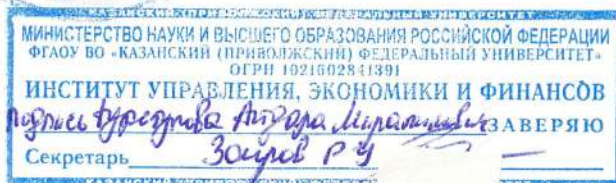 КАЗАНСКИЙ (ПРИВОЛЖСКИЙ) ФЕДЕРАЛЬНЫЙ УНИВЕРСИТЕТ
МИНИСТЕРСТВО НАУКИ И ВЫСШЕГО ОБРАЗОВАНИЯ РОССИЙСКОЙ ФЕДЕРАЦИИ
ФГАОУ ВО «КАЗАНСКИЙ (ПРИВОЛЖСКИЙ) ФЕДЕРАЛЬНЫЙ УНИВЕРСИТЕТ»
ОГРН 1021602841391
ИНСТИТУТ УПРАВЛЕНИЯ, ЭКОНОМИКИ И ФИНАНСОВ
подпись ЗАВЕРЯЮ
Секретарь